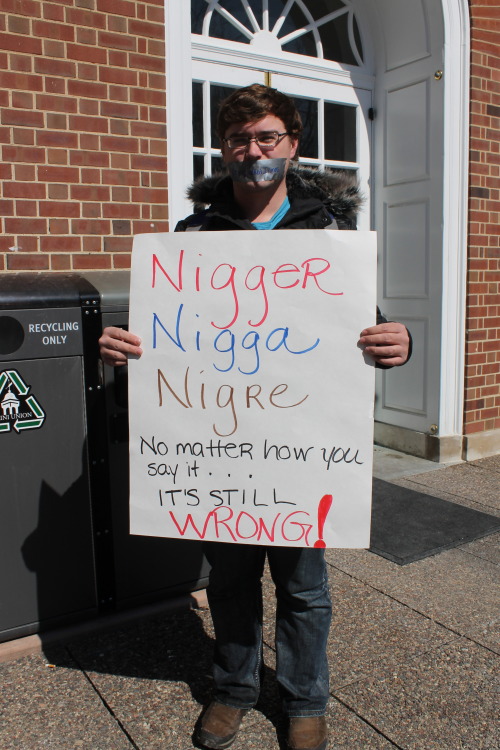 NiggeR
Nigga
NigRe
No matteR how you
say it . . .
IT'S STILL
WRONG!
RECYCLING
ONLY
INI UNION